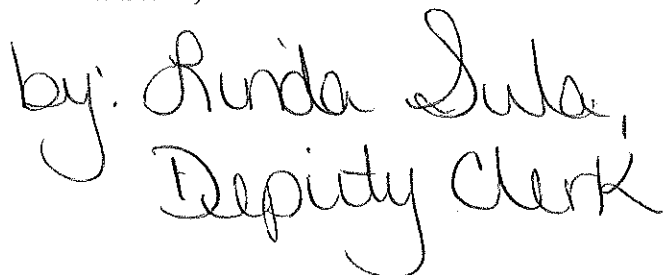 by: Linda Sula,
Deputy Clerk